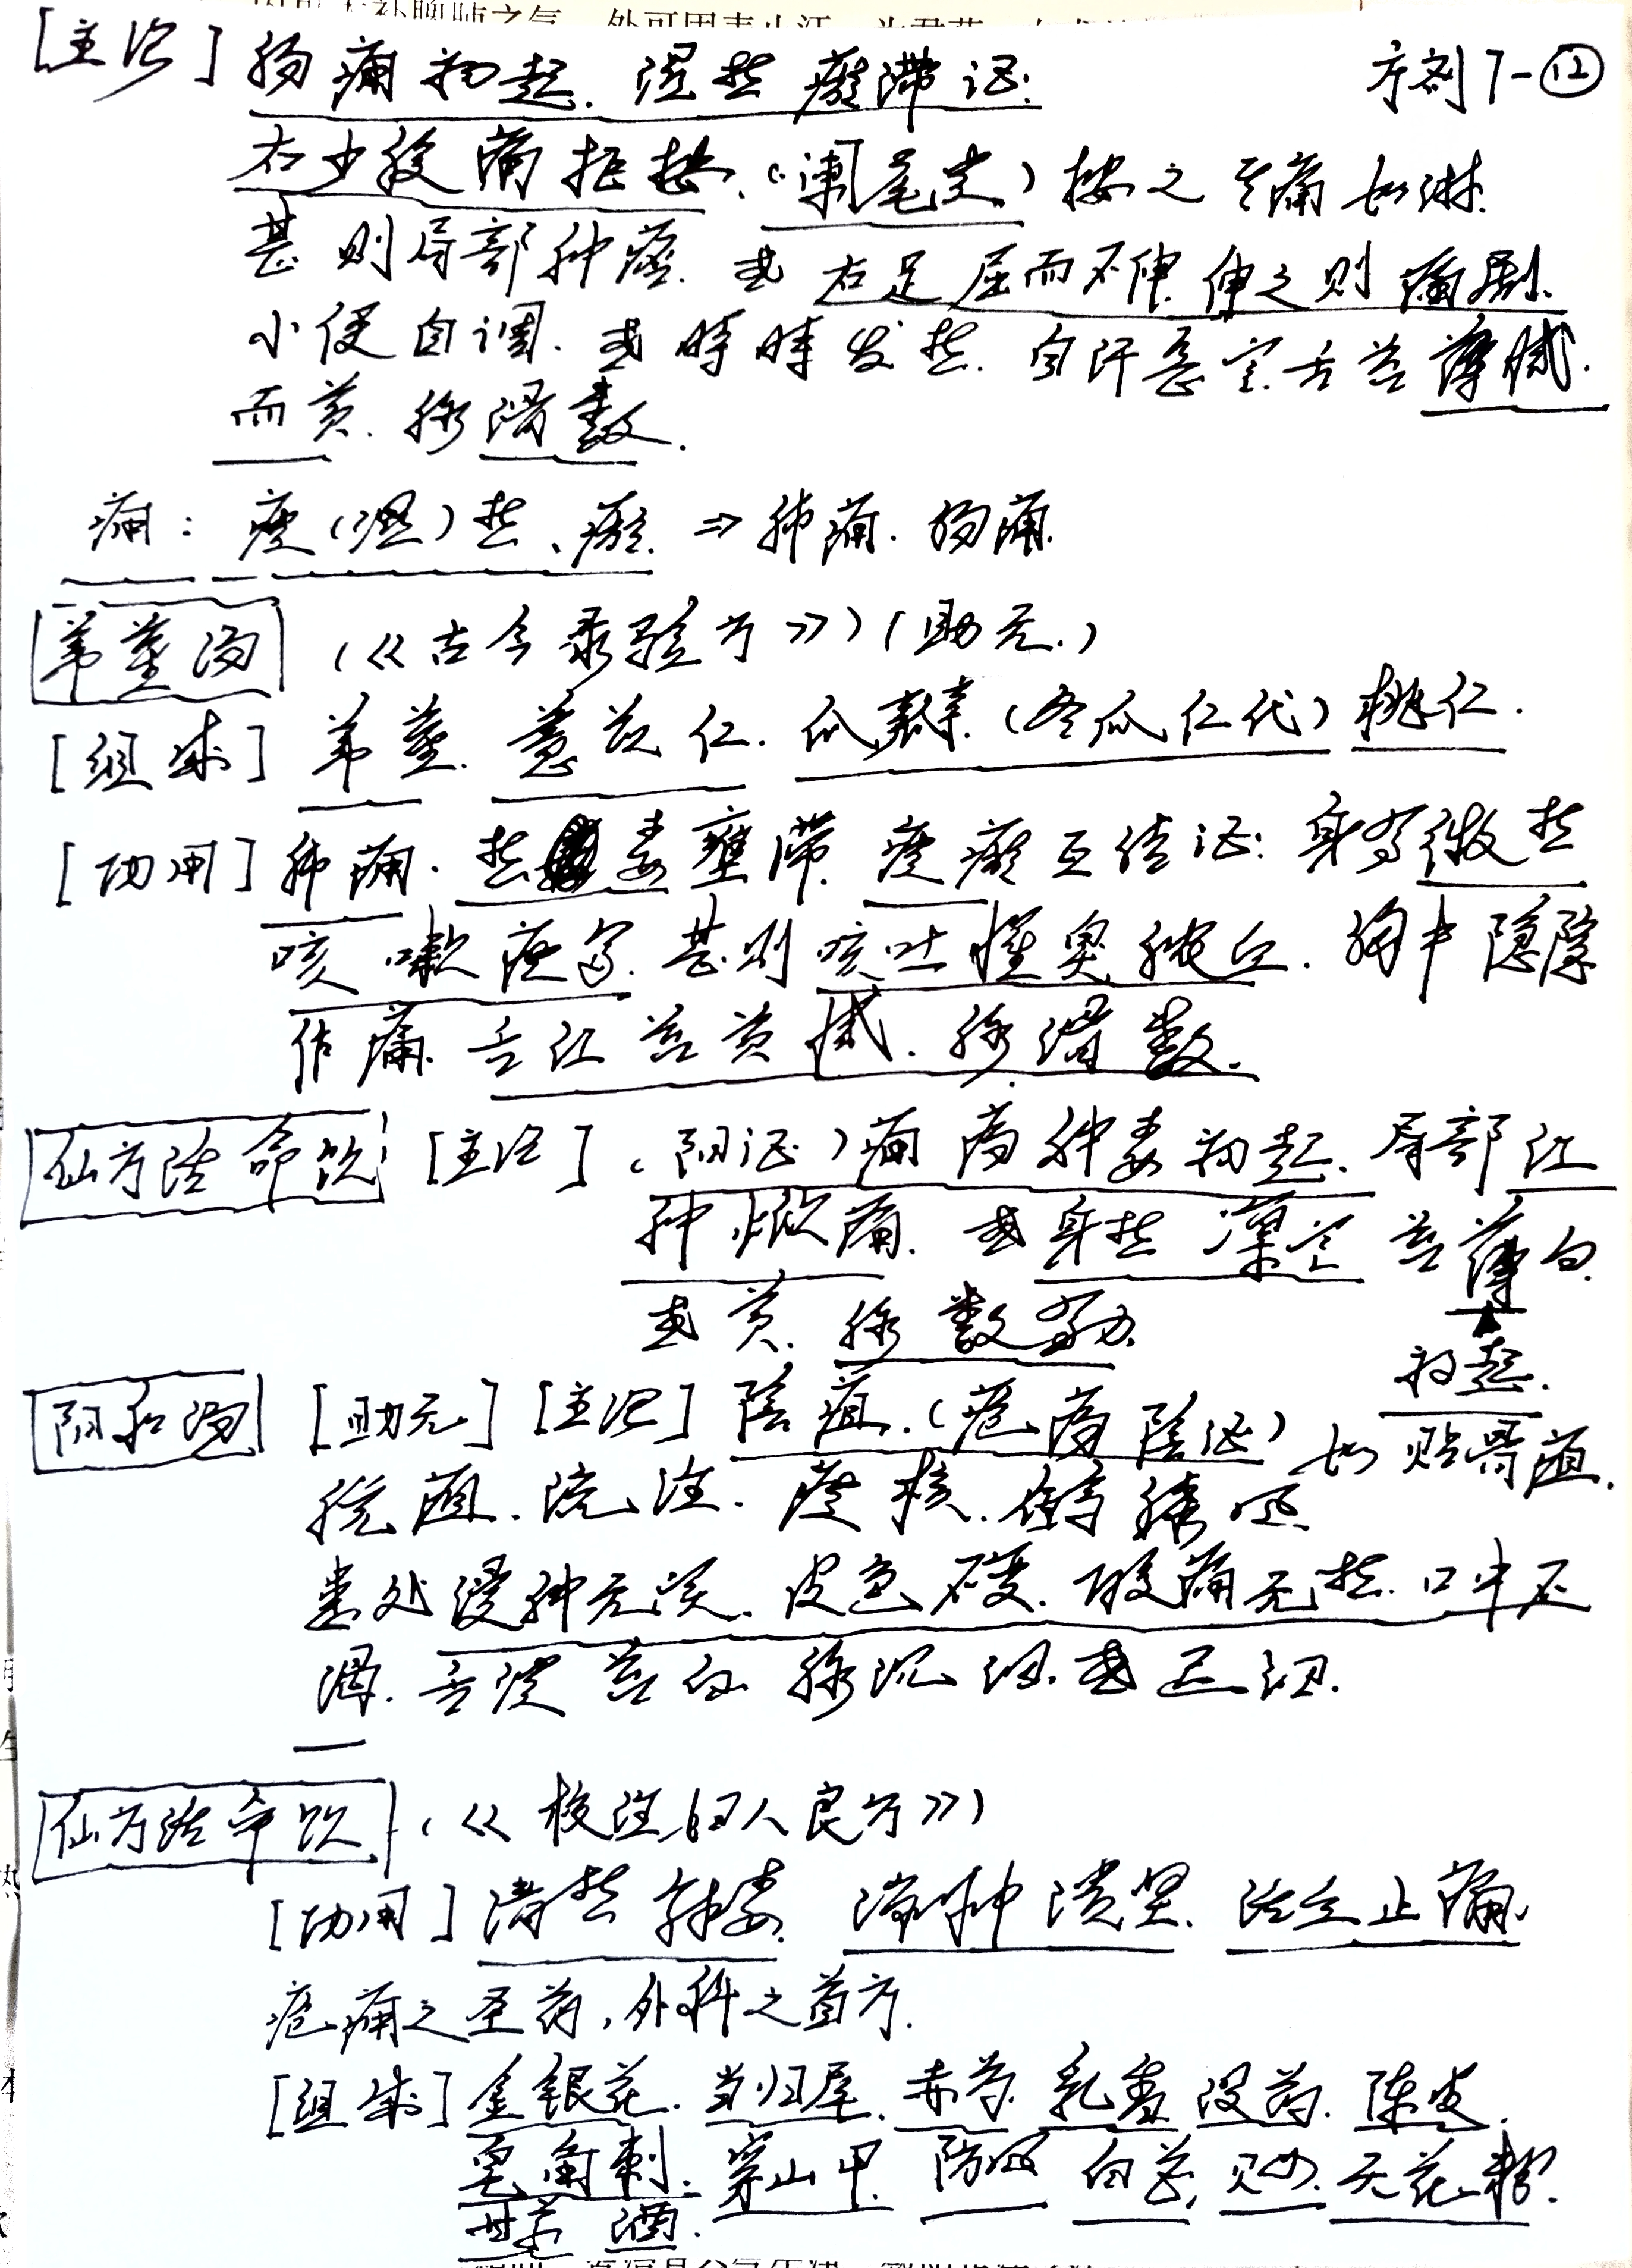 [主治] 肠痈初起. 湿热瘀滞证:
方剂 7-⑫
右少腹痛拒按. (阑尾炎) 按之其痛如淋.
甚则局部肿痞. 或右足屈而不伸. 伸之则痛剧.
小便自调. 或時時发热. 自汗恶寒. 舌苔薄腻.
而黄. 脉滑数.
痈: 痰(湿)热、瘀. ⇒ 肺痈. 肠痈.
苇茎汤 (《古今录验方》) (助记.)
[组成] 苇茎. 薏苡仁. 瓜瓣. (冬瓜仁代) 桃仁.
[功用] 肺痈. 热毒壅滞. 痰瘀互结证: 身有微热
咳嗽痰多. 甚则咳吐腥臭脓血. 胸中隐隐
作痛. 舌红苔黄腻. 脉滑数.
仙方活命饮 [主治] (阳证) 痈疡肿毒初起. 局部红
肿焮痛. 或身热凛寒 苔薄白.
或黄. 脉数有力.
初起.
阳和汤 [助记] [主治] 陰疽. (疮疡陰证) 如贴骨疽.
脱疽. 流注. 痰核. 鹤膝风
患处漫肿无头. 皮色不变. 酸痛无热. 口中不
渴. 舌淡苔白. 脉沉细. 或迟细.
仙方活命饮 (《校注妇人良方》)
[功用] 清热解毒. 消肿溃坚. 活血止痛.
疮痈之圣药, 外科之首方.
[组成] 金银花. 当归尾. 赤芍. 乳香 没药. 陈皮.
皂角刺. 穿山甲. 防风 白芷, 贝母. 天花粉.
甘草 酒.